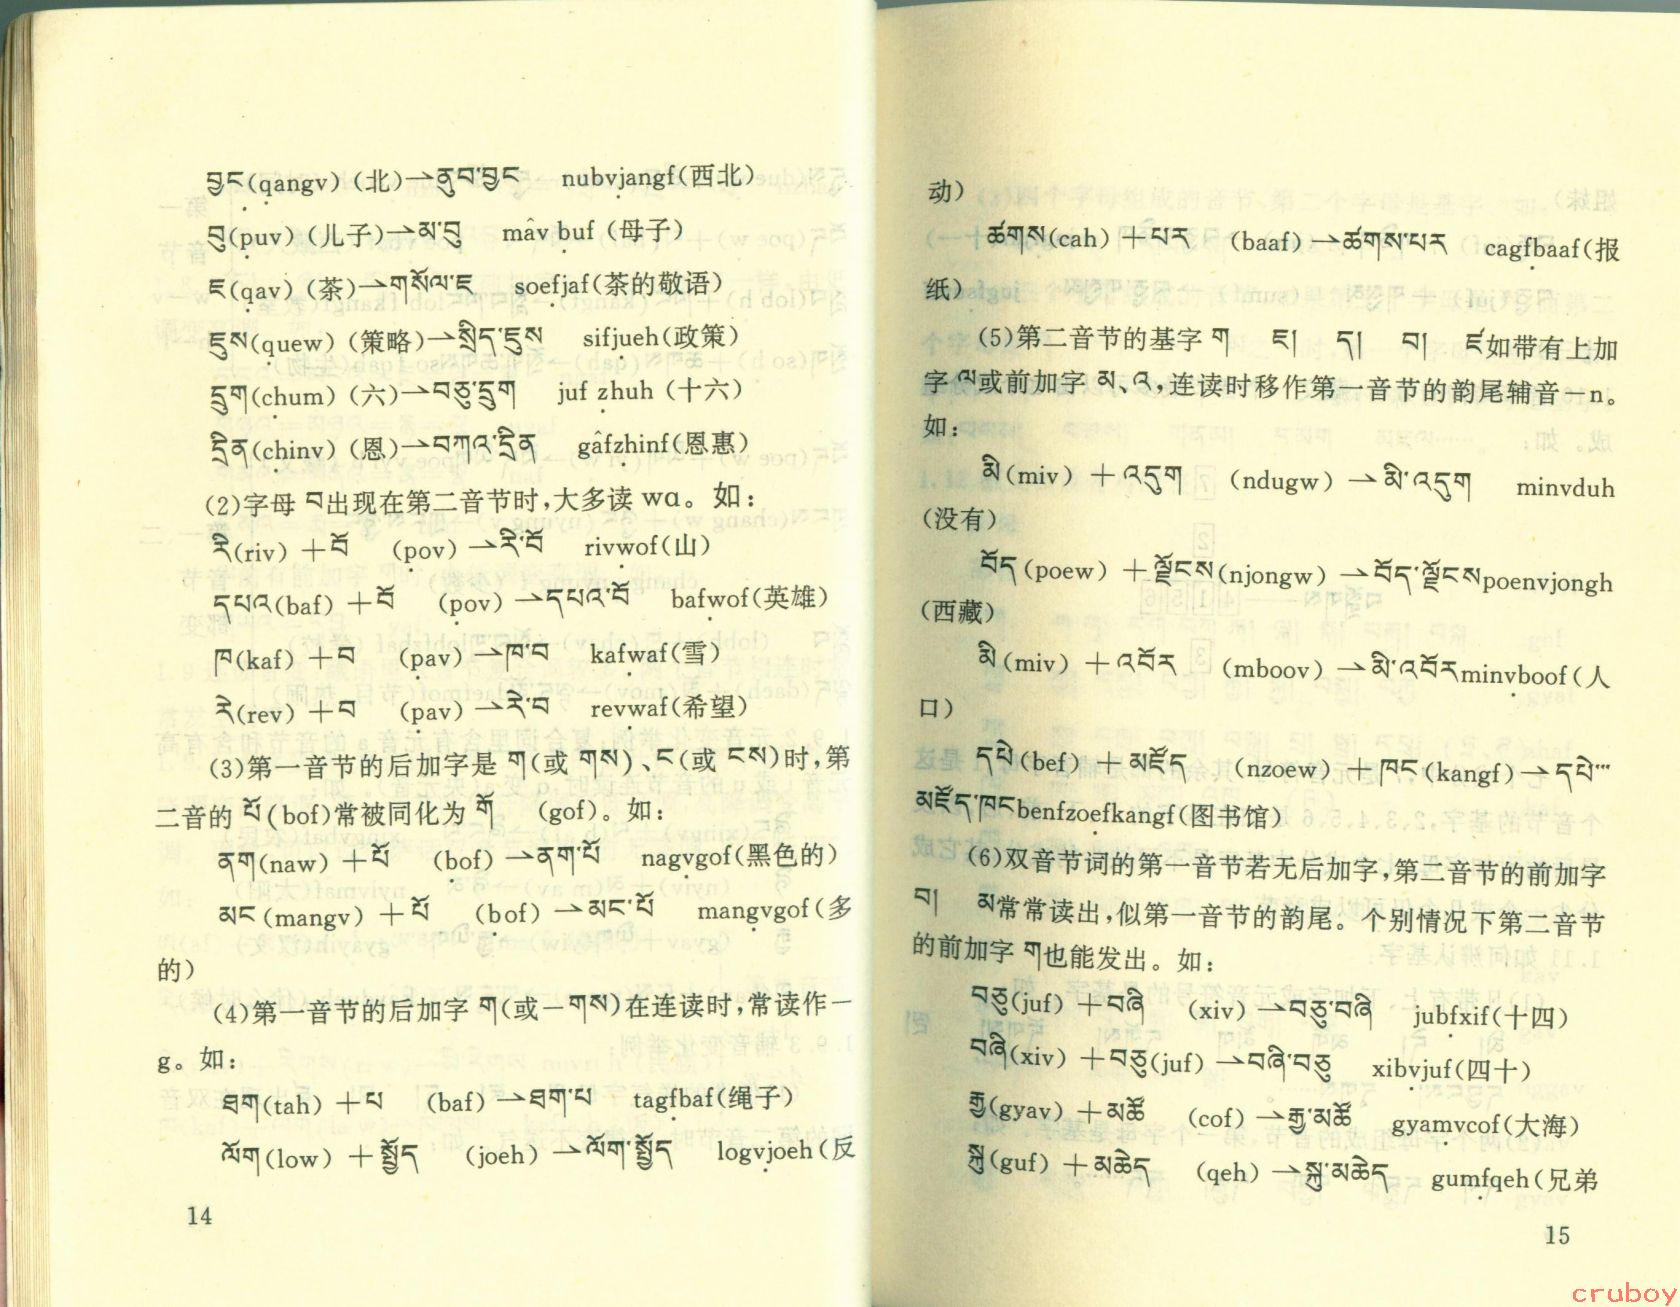 བྱང(qangv)(北)→ནུབ་བྱང nubvjangf(西北)
བུ(puv)(儿子)→མ་བུ mâv buf (母子)
ཇ(qav)(茶)→གསོལ་ཇ soefjaf(茶的敬语)
ཇུས(quew)(策略)→སྲིད་ཇུས sifjueh(政策)
དྲུག(chum)(六)→བཅུ་དྲུག juf zhuh (十六)
དྲིན(chinv)(恩)→བཀའ་དྲིན gâfzhinf(恩惠)
(2)字母 བ出现在第二音节时,大多读 wɑ。如:
རི(riv) +བོ (pov)→རི་བོ rivwof(山)
དཔའ(baf) +བོ (pov)→དཔའ་བོ bafwof(英雄)
ཁ(kaf) +བ (pav)→ཁ་བ kafwaf(雪)
རེ(rev) +བ (pav)→རེ་བ revwaf(希望)
(3)第一音节的后加字是 ག(或 གས)、ང(或 ངས)时,第
二音的 པོ(bof)常被同化为 གོ (gof)。如:
ནག(naw) +པོ (bof)→ནག་པོ nagvgof(黑色的)
མང(mangv) +པོ (bof)→མང་པོ mangvgof(多
的)
(4)第一音节的后加字 ག(或—གས)在连读时,常读作—
g。如:
ཐག(tah) +པ (baf)→ཐག་པ tagfbaf(绳子)
ལོག(low) +སྤྱོད (joeh)→ལོག་སྤྱོད logvjoeh(反
14
动)
ཚགས(cah) +པར (baaf)→ཚགས་པར cagfbaaf(报
纸)
(5)第二音节的基字 ག ཇ། ད། བ། ཛ如带有上加
字 ལ或前加字 མ、འ,连读时移作第一音节的韵尾辅音—n。
如:
མི(miv) +འདུག (ndugw)→མི་འདུག minvduh
(没有)
བོད(poew) +ལྗོངས(njongw)→བོད་ལྗོངསpoenvjongh
(西藏)
མི(miv) +འབོར (mboov)→མི་འབོརminvboof(人
口)
དཔེ(bef) +མཛོད (nzoew) +ཁང(kangf)→དཔེ་
མཛོད་ཁངbenfzoefkangf(图书馆)
(6)双音节词的第一音节若无后加字,第二音节的前加字
བ། མ常常读出,似第一音节的韵尾。个别情况下第二音节
的前加字 ག也能发出。如:
བཅུ(juf) +བཞི (xiv)→བཅུ་བཞི jubfxif(十四)
བཞི(xiv) +བཅུ(juf)→བཞི་བཅུ xibvjuf(四十)
རྒྱ(gyav) +མཚོ (cof)→རྒྱ་མཚོ gyamvcof(大海)
སྐུ(guf) +མཆེད (qeh)→སྐུ་མཆེད gumfqeh(兄弟
15
cruboy